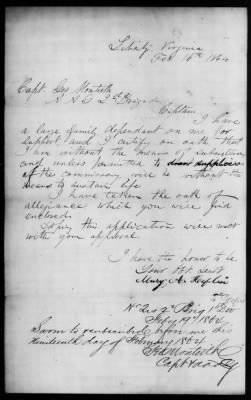 Liberty Virginia
Feb 16th 1864
Capt. Geo Monteith
A A G 2d Brigade
Captain, I have
a large family dependant on me for
support, and I certify on oath that
I am without the means of subsistence
and unless permitted to draw supplies
of the commissary will be without the
means to sustain life
I have taken the oath of
allegiance which you will find
enclosed.
this application will meet
with your approval
I have the honor to be
Your Obt Servt
Mary A.
Hd Qrs 2d Brig 1st Div
Feby 19th 1864
Sworn to & subscribed before me this
Nineteenth day of February 1864
Geo Monteith
Capt